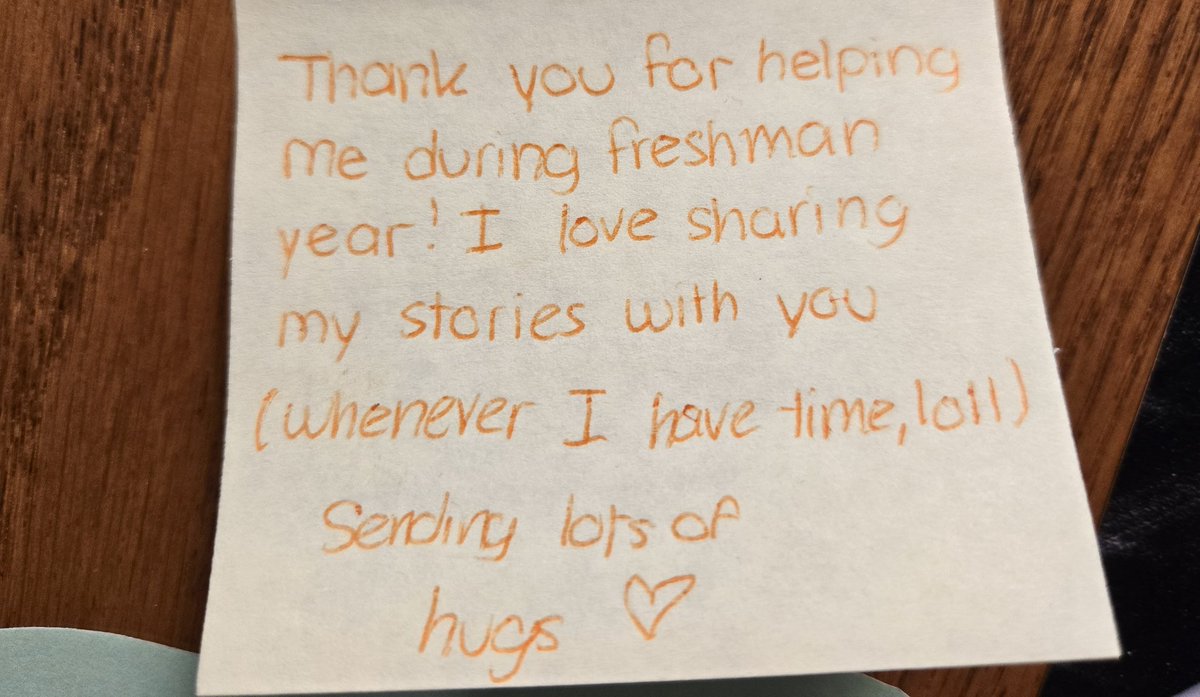 Thank you for helping
me during freshman
year! I love sharing
my stories with you
(whenever I have time, loll)
Sending lots of
hugs ♡